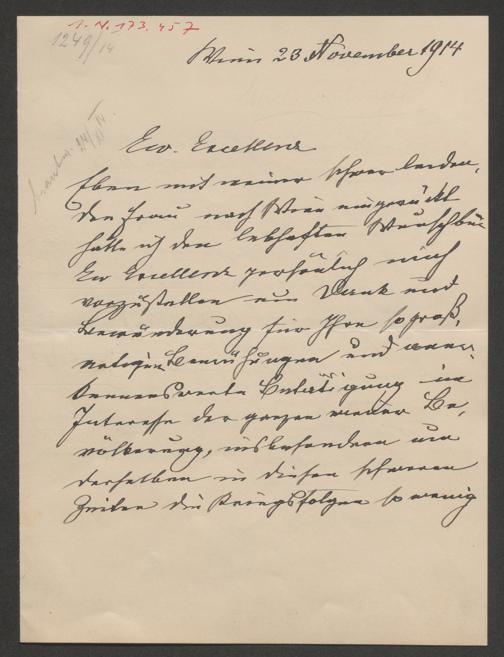 I. N. 173.457
1249/14
Wien 23 November 1914
Ew. Excellenz
Eben mit meiner schwer leiden,
den Frau nach Wien eingerückt
hätte ich den lebhaften Wunsch bei
Ew Excellenz persönlich mich
vorzustellen um Dank und
Bewunderung für Ihre so groß,
Bemühungen und aner,
kennenswerte Betätigung im
Interesse der ganzen wiener Be,
völkerung, insbesondere um
derselben in diesen schweren
Zeiten die Kriegsfolgen so wenig